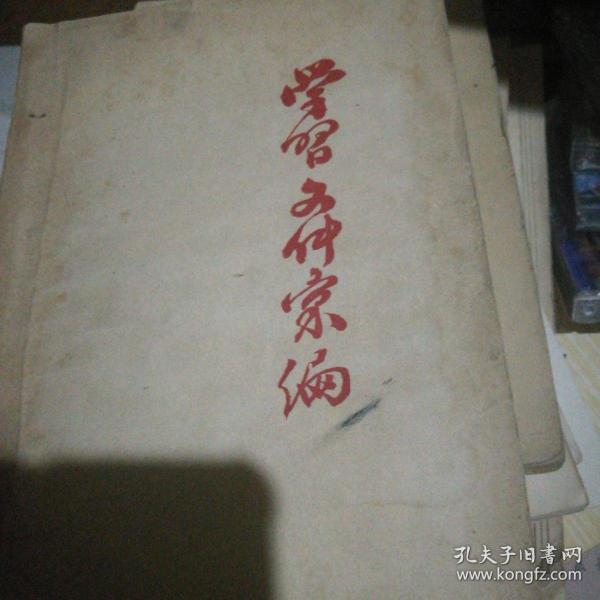 学习文件汇编
孔夫子旧書网
www.kongfz.com